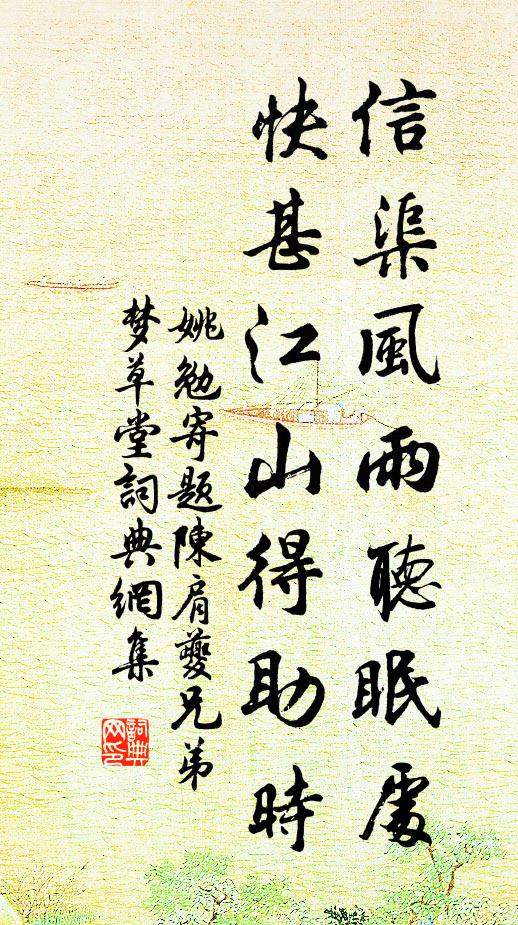 信渠風雨聽眠處
快甚江山得助時
姚勉寄題陳肩夔兄弟
梦草堂詞典網集
詞典網印